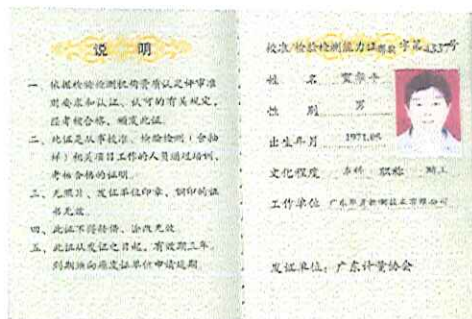 说 明
一、依据检验检测机构资质认定评审准
则要求和认证、认可的有关规定，
经考核合格，颁发此证。
二、此证是从事校准、检验检测（含抽
样）相关项目工作的人员通过培训，
考核合格的证明。
三、无照片、发证单位印章、钢印的证
书无效。
四、此证不得转借、涂改无效。
五、此证从发证之日起，有效期三年。
到期须向原发证单位申请延期。
校准/检验检测能力证 字第4337号
姓 名
性 别 男
出生年月 1971.08
文化程度 本科 职称 助工
工作单位 广东 检测技术有限公司
发证单位：广东计量协会